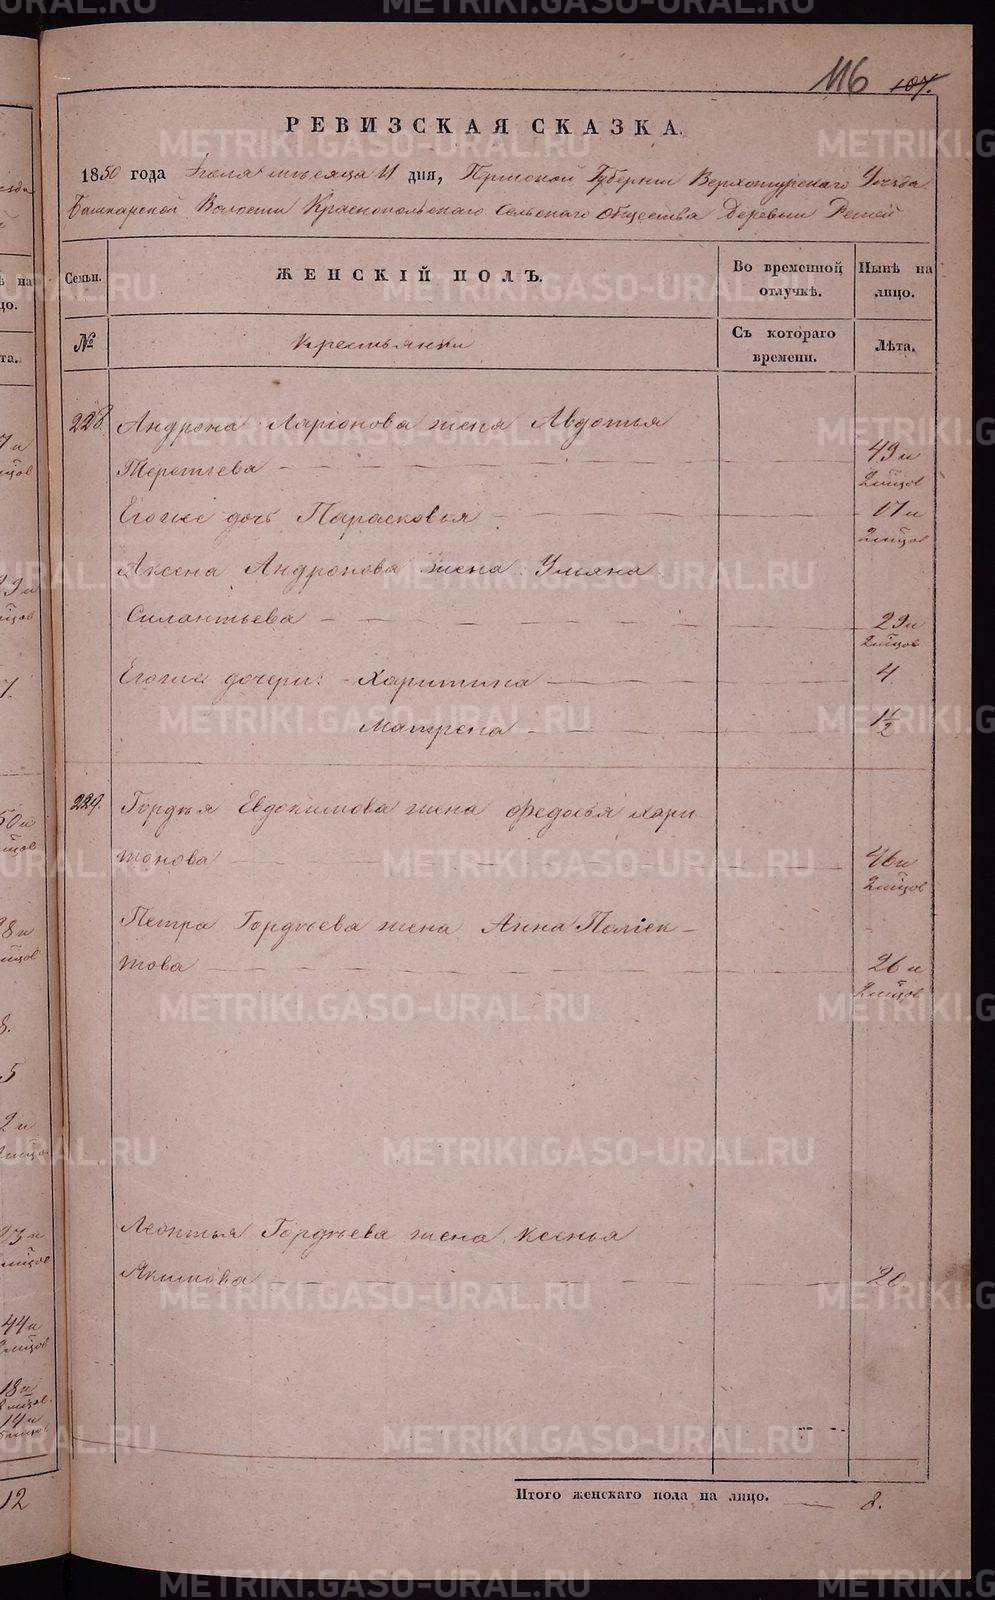 116 107.
РЕВИЗСКАЯ СКАЗКА.
1850 года Июля мѣсяца 11 дня, Пермской Губернии Верхотурскаго Уѣзда
Башкарской Волости Краснопольскаго Сельскаго Общества Деревни Реши
Семьи. ЖЕНСКІЙ ПОЛЪ. Во временной отлучкѣ. Нынѣ на лицо.
№ Крестьянки Съ котораго времени. Лѣта.
228. Андрона Ларіонова жена Авдотья
Терентьева 49 и 2 мцов
Егоже дочь Парасковья 17 и 2 мцов
Аксена Андронова жена Ульяна
Силантьева 29 и 2 мцов
Егоже дочери: Харитина 4
Матрена 1½
229. Гордѣя Евдокимова жена Федосья Хари
тонова 46 и 2 мцов
Петра Гордѣева жена Анна Полиек-
това 26 и 2 мцов
Леонтья Гордѣева жена Ксенья
Якимова 20
Итого женскаго пола на лицо. 8.
12
METRIKI.GASO-URAL.RU